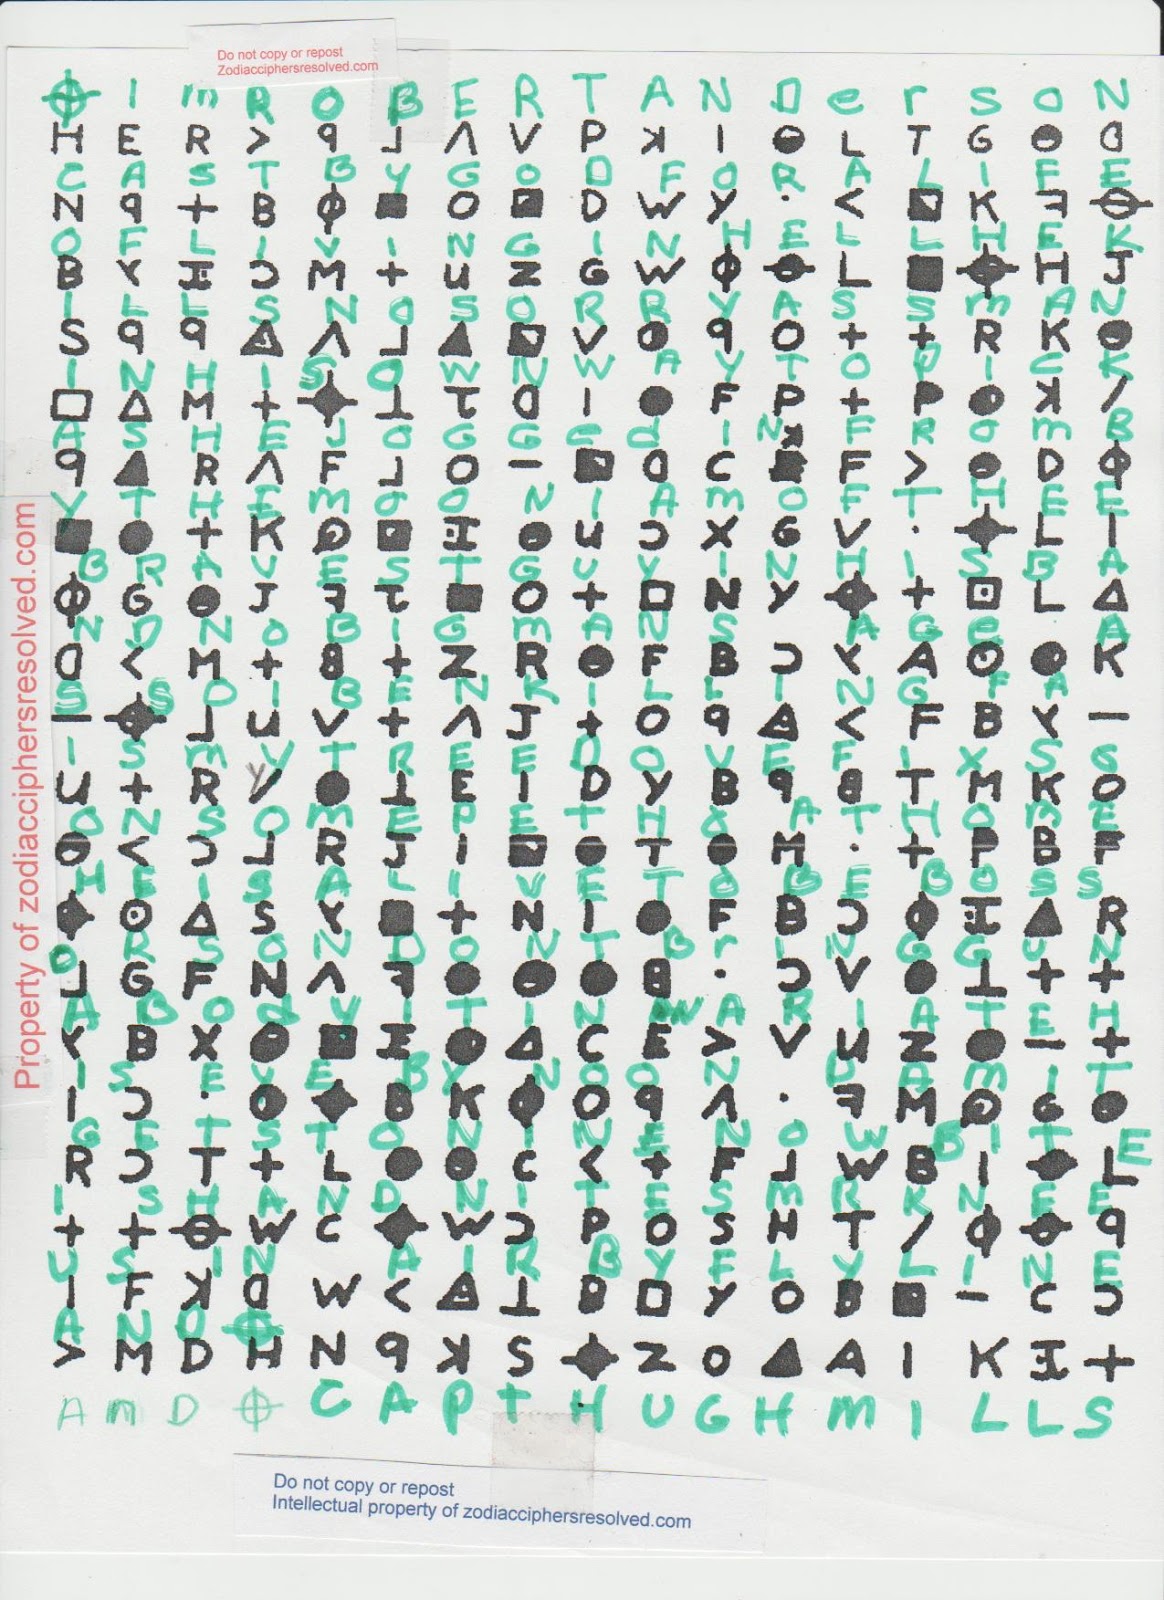 Do not copy or repost
Zodiacciphersresolved.com
Property of zodiacciphersresolved.com
⌖ I m R O B E R T A N D e r s o N
H E R > ꟼ ⅃ Λ V P ꓘ I ⊖ L T G ⊖ ᗡ
C A S T B Y G O D F O R A L I F E
N ꟼ + B ⌽ ■ O ◪ D W Y · < ◪ K ꟻ ⌖
O F L I V I N G I N H E L L H E K
B Y ⌶ Ɔ M + U Z G W ⌽ ⌖ L ■ ⌖ H J
I L L S N O S O R R Y A S S m A N
S ꟼ ꟼ ◭ Λ ⅃ ▲ ◪ V ⊖ ꟼ O + + R K ⊖
I N H I S O W N W A Y T O P I C K
□ Δ M + ⌖ ⊥ τ ᗡ I ● F P + P ⊖ ꓘ /
A S H E J O G G E d I N F R O m B
ꟼ ▲ R Λ F ⅃ O - ◪ ᗡ C ■ F > ⊖ D ⌽
Y T H E m O O N I A m O F T H E E
■ ● + K ⊖ ◪ ⌶ ⊖ U Ɔ X G V · ⌖ L I
B R A V E S T G U Y I N H I S B A
⌽ G ⊖ J ꟻ τ ■ O + □ N Y ⌖ + ⊡ L Δ
ᗡ < M + 8 + Z R ⊖ F B Ɔ Y A ⊙ ● K
- ⌖ ⅃ U V + Λ J + O ꟼ ◭ < F B Y -
I S m Y T R E E D O V E F I X S G
U + R / ● ⊥ E I D Y B ꟼ 8 T M K O
⊖ < Ɔ ⅃ R J I ◪ ● T ⊖ M · + P B F
H E I S A L I V E T O B E B O S S
⌖ ⊙ Δ S Y ■ + N I ● F B Ɔ ⌽ ⌶ ▲ R
O R S O N D O N T B r I N G G U N
⅃ G F N Λ ꟻ ● ⊖ ● 8 · Ɔ V ● ⊥ + +
A B O d Y I T I N W A R I A T E H
Y B X ⊖ ■ ⌶ ● Δ C E > V U Z ● - +
I Ɔ · ⊖ ⌖ B K ⌽ O ꟼ Λ · ꟻ M ⊖ G ⊖
G E T S T O N I N E N O W B I T E
R Ɔ T + L ● ⊖ C < + F ⅃ W B I ⌖ L
I S H A N D N I T E S m R K N E E
+ + ⌖ W C ⌖ W Ɔ P O S H T / ⌽ ⌖ ꟼ
U S I N A I R B Y F L Y L I N E
I F ꓘ ᗡ W < ◭ ⊥ B □ Y O B ■ - C Ɔ
A N D ⌖
> M D H N ꟼ ꓘ S ⌖ Z O ▲ A I K ⌶ +
A N D ⌖ C A P T H U G H m I L L S
Do not copy or repost
Intellectual property of zodiacciphersresolved.com